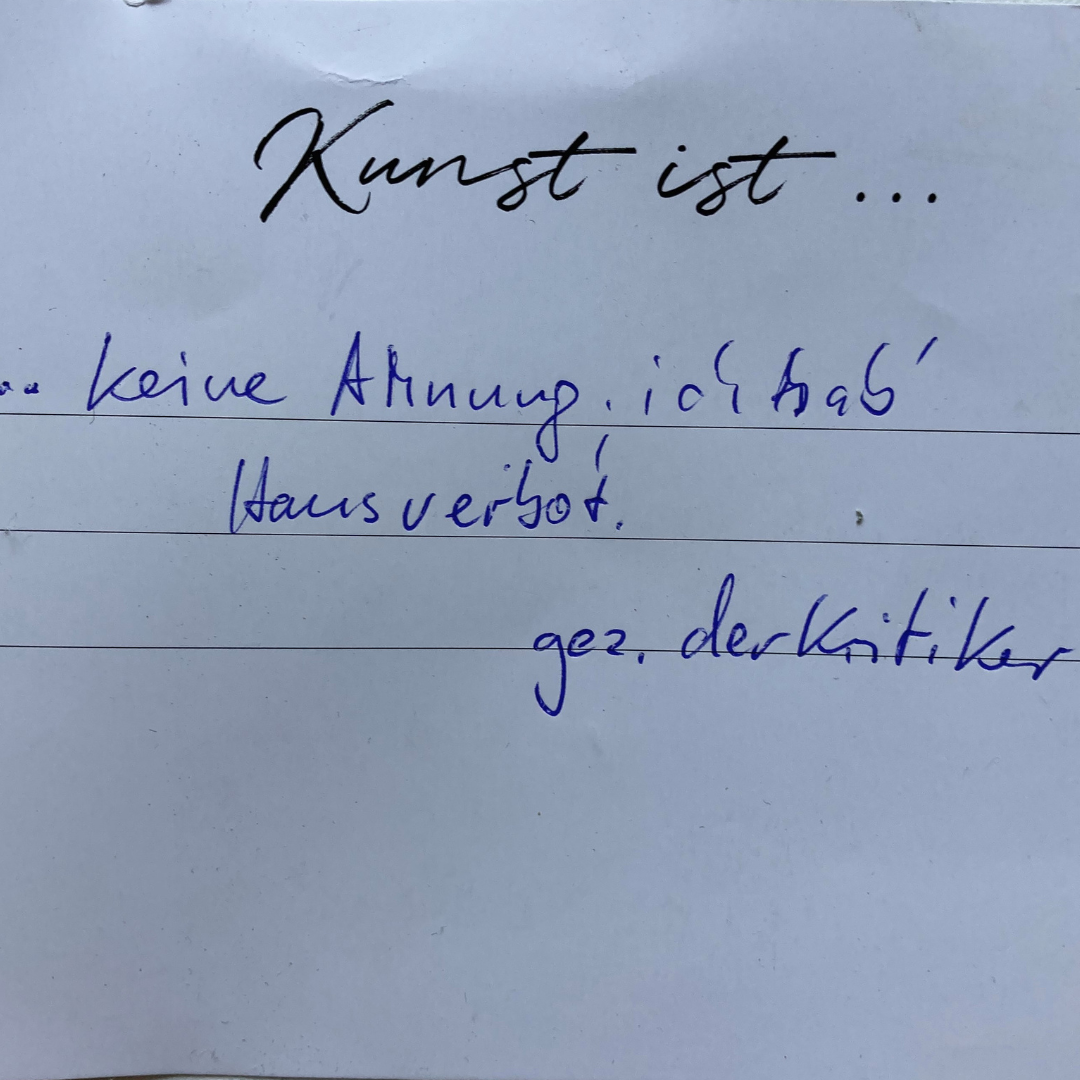 Kunst ist ...
.. keine Ahnung. ich hab'
Hausverbot.
gez. der Kritiker